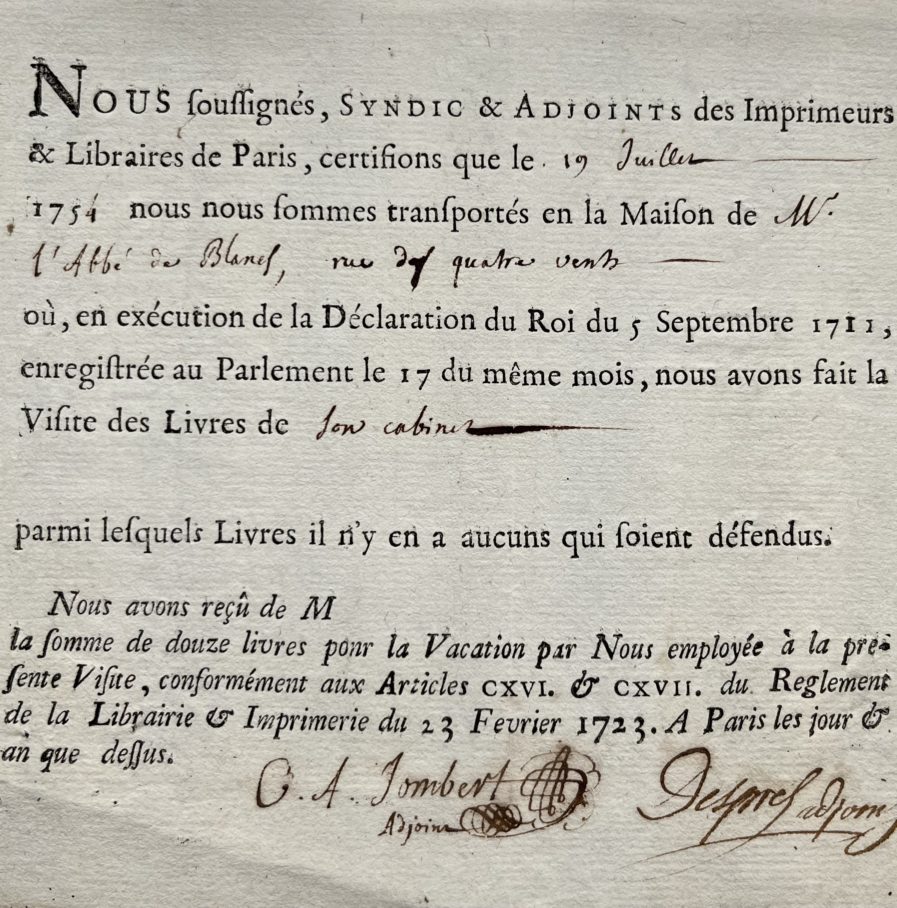 NOUS souſſignés, SYNDIC & ADJOINTS des Imprimeurs
& Libraires de Paris, certifions que le 19 Juillet
1754 nous nous ſommes tranſportés en la Maiſon de Mr.
l'Abbé de Blanes, rue des quatre vents
où, en exécution de la Déclaration du Roi du 5 Septembre 1711,
enregiſtrée au Parlement le 17 du même mois, nous avons fait la
Viſite des Livres de ſon cabinet
parmi leſquels Livres il n'y en a aucuns qui ſoient défendus.
Nous avons reçû de M
la ſomme de douze livres ponr la Vacation par Nous employée à la pré-
ſente Viſite, conformément aux Articles CXVI. & CXVII. du Reglement
de la Librairie & Imprimerie du 23 Fevrier 1723. A Paris les jour &
an que deſſus.
C. A. Jombert
Adjoint
Despres adjoint